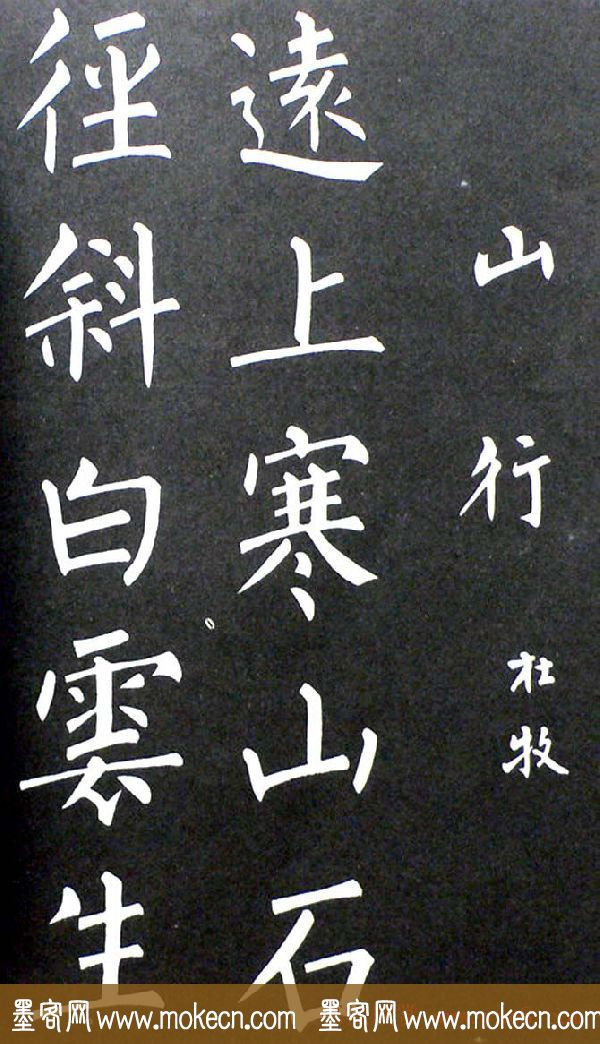 山行
杜牧
遠上寒山石
徑斜白雲生
墨客网 www.mokecn.com 墨客网 www.mokecn.com